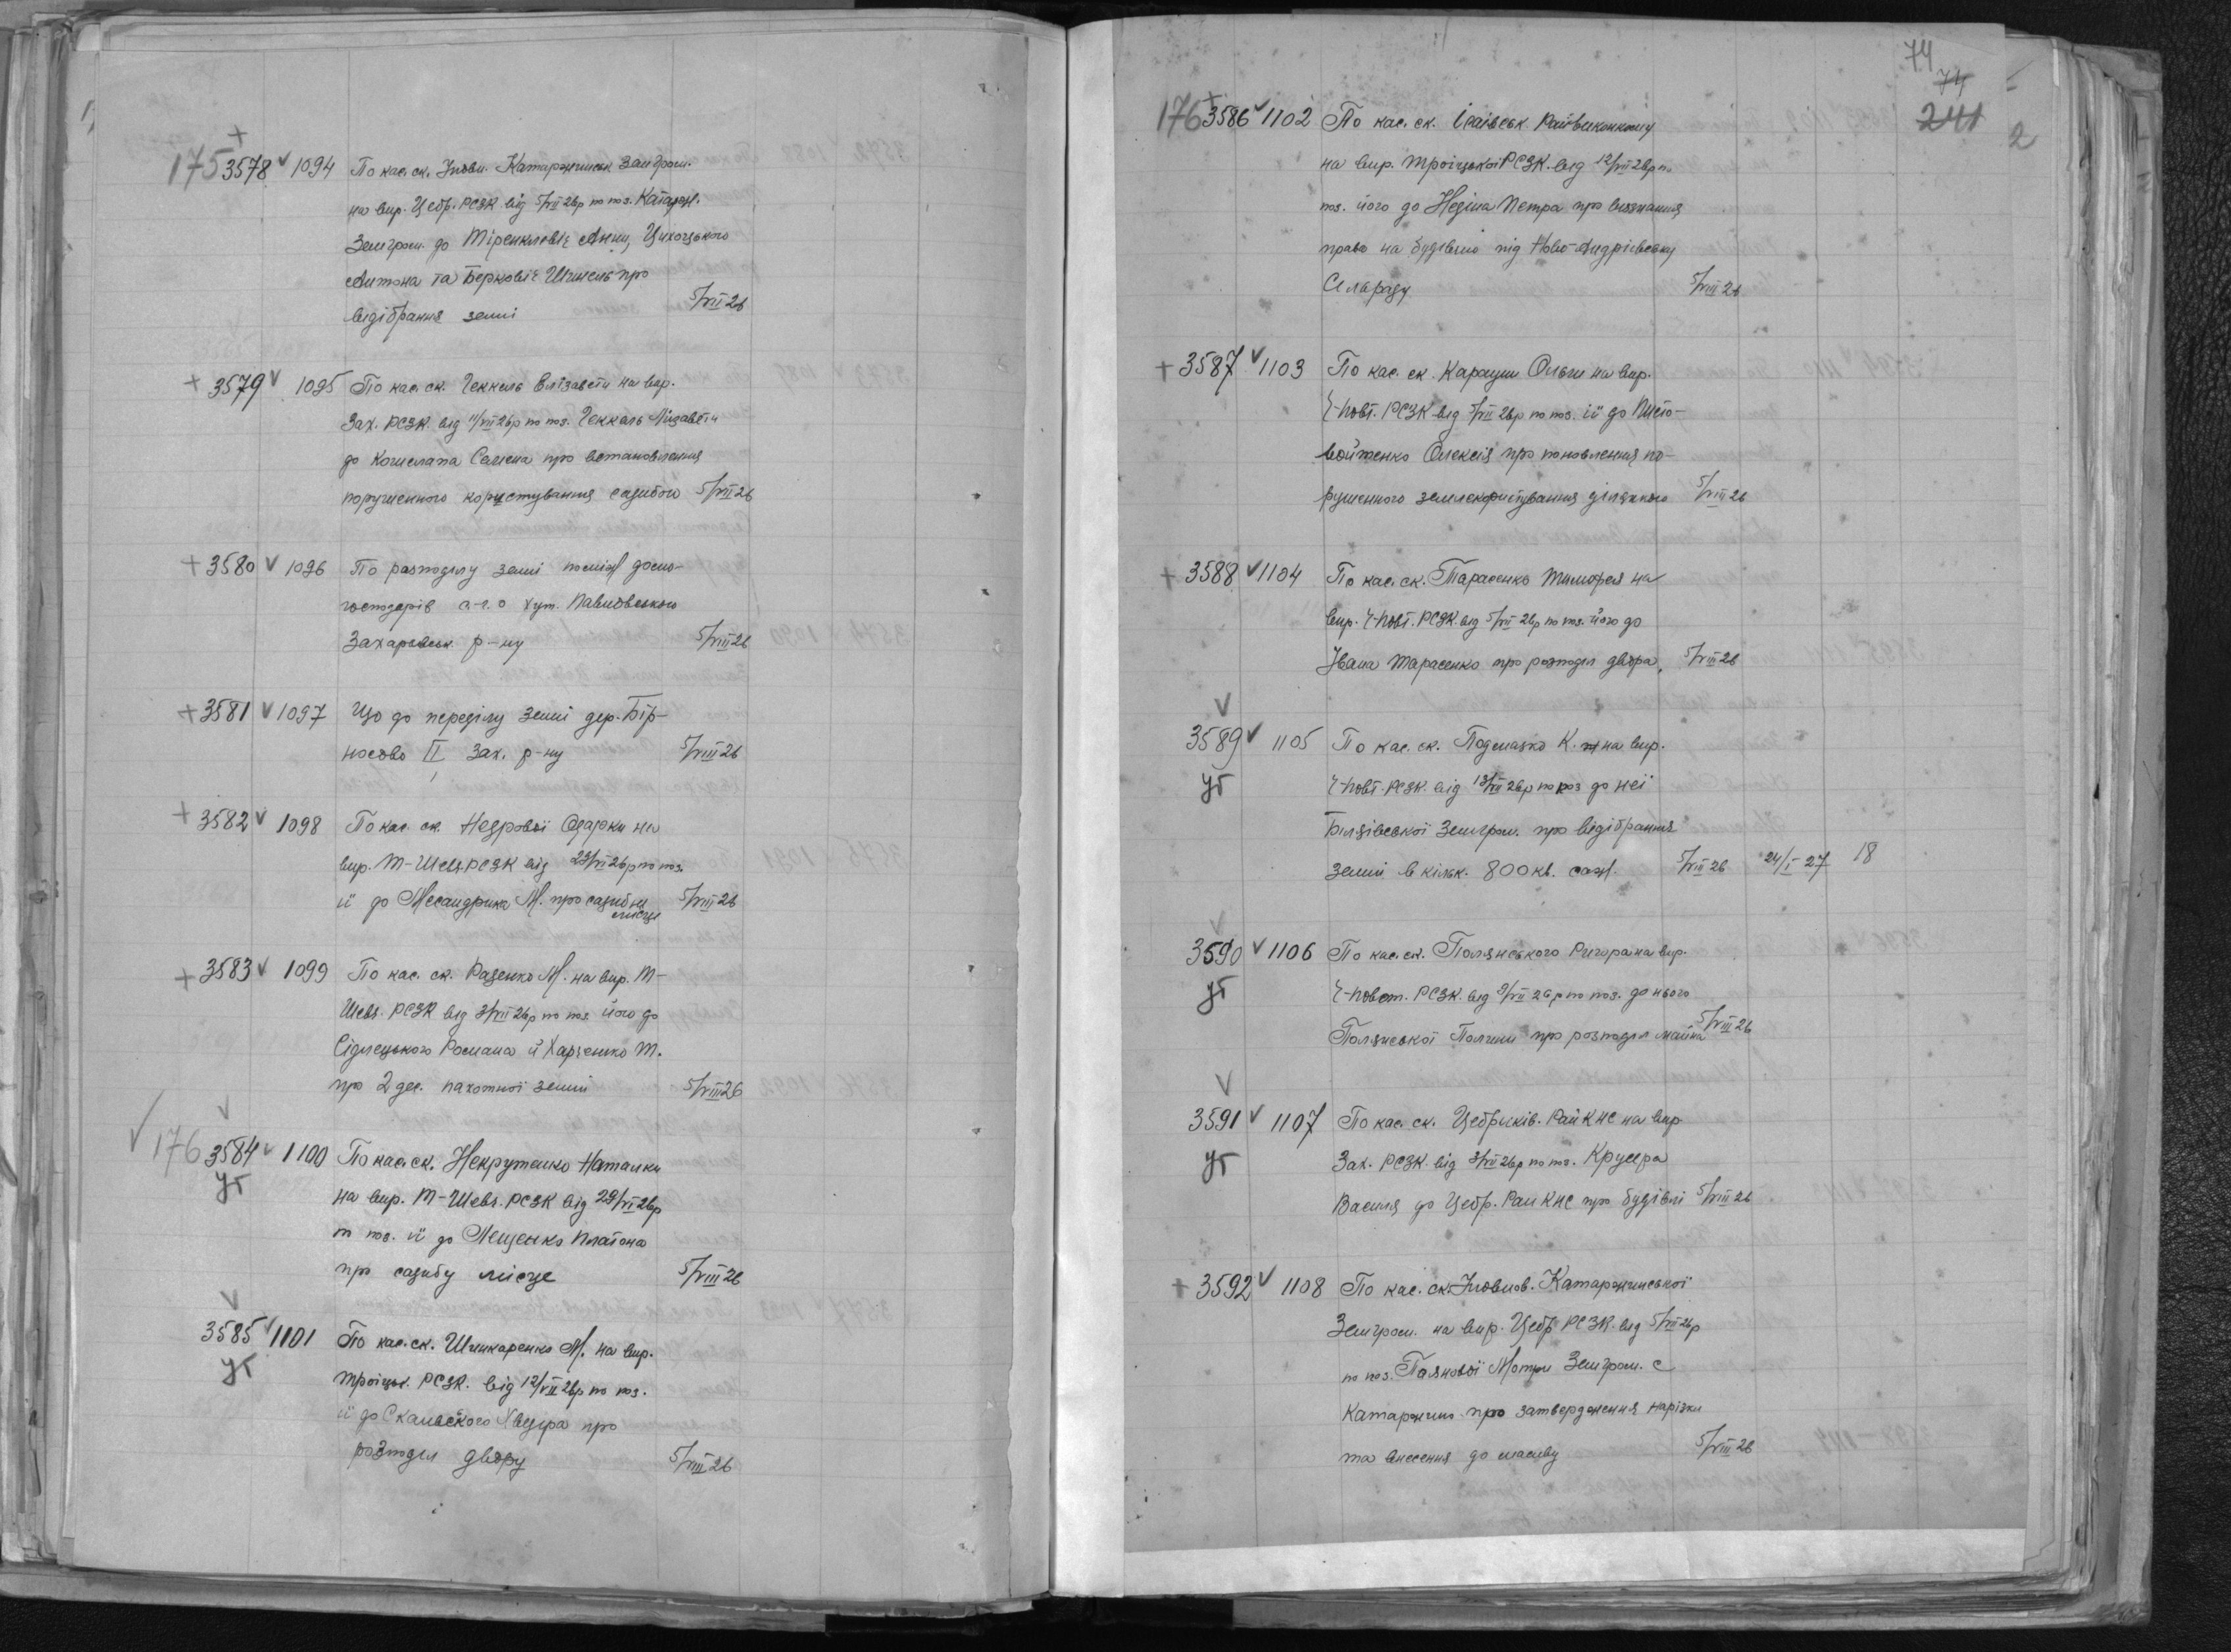 175 + 3578 v 1094 По кас. ск. Катаржинськ Земгром.
на вир. Цебр. РСЗК від 5/VII 26р по поз. Катарж.
Земгром. до Анни, Цихоцького
Антона та Беркович про
відібрання землі 5/VIII 26
+ 3579 v 1095 По кас. ск. Геккель Єлізавети на вир.
Зах. РСЗК. від 11/VII 26р по поз. Геккель Лізавети
до Семена про встановлення
порушеного користування садибою 5/VIII 26
+ 3580 v 1096 По разподілу землі поміж домо-
господарів с.-г. о хут. Павловського
Захаровськ. р-ну 5/VIII 26
+ 3581 v 1097 Що до переділу землі дер. Бір-
носово II Зах. р-ну 5/VIII 26
+ 3582 v 1098 По кас. ск. Недрової Одарки на
вир. Т-Шевч РСЗК від 23/VI 26р по поз.
її до М. про садибне
місце 5/VIII 26
+ 3583 v 1099 По кас. ск. Раденко М. на вир. Т-
Шевч. РСЗК від 3/VII 26р по поз. його до
Сідлецького Романа й Харченко Т.
про 2 дес. пахотної землі 5/VIII 26
v
v 176 3584 v 1100 По кас. ск. Некрутенко Наталки
ут
на вир. Т-Шевч. РСЗК від 29/VI 26р
п поз. її до Лещенко Платона
про садибу місце 5/VIII 26
v
3585 v 1101 По кас. ск. Шинкаренко М. на вир.
ут
Троіцьк. РСЗК. від 12/VII 26р по поз.
її до Скаливского Хведора про
розподіл двору 5/VIII 26
74
74
241
2
176 + 3586 v 1102 По кас. ск. Ісаівськ. Райвиконкому
на вир. Троіцької РСЗК. від 12/VII 26р по
поз. його до Недіна Петра про визнання
право на будівлю під Ново-Андріевську
Сільраду 5/VIII 26
+ 3587 v 1103 По кас. ск. Карауш Ольги на вир.
Ч-повт. РСЗК від 5/VII 26р по поз. її доПисто-
Олексія про поновлення по-
рушенного землекористування ділянкою 5/VIII 26
+ 3588 v 1104 По кас. ск. Тарасенко Тимофея на
вир. Ч-повт. РСЗК. від 5/VII 26р по поз. його до
Івана Тарасенко про розподіл двора, 5/VIII 26
v
3589 v 1105 По кас. ск. Подмазко К. на вир.
ут
Ч-повт. РСЗК. від 13/VII 26р по поз до неї
Білзівської Земгром. про відібрання
землі в кільк. 800 кв. саж. 5/VIII 26 24/I 27 18
v
3590 v 1106 По кас. ск. Полянського Ригора на вир.
ут
Ч-повст. РСЗК. від 9/VII 26р по поз. до нього
Полянської про розподіл майна 5/VIII 26
v
3591 v 1107 По кас. ск. Цебриків. РайКНС на вир
ут
Зах. РСЗК. від 3/VII 26р по поз. Крусера
Василя до Цебр. РайКНС про будівлі 5/VIII 26
+ 3592 v 1108 По кас. ск. Катаржинської
Земгром. на вир. Цебр РСЗК. від 5/VII 26р
по поз. Мотри Земгром. с
Катаржино про затвердження нарізки
та внесення до масиву 5/VIII 26